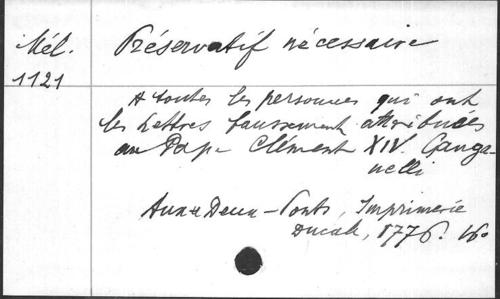 Mél.
1121
Préservatif nécessaire
A toutes les personnes qui ont
les Lettres faussement attribuées
au Pape Clément XIV Ganga-
nelli
Aux Deux-Ponts, Imprimerie
Ducale, 1776. 16°